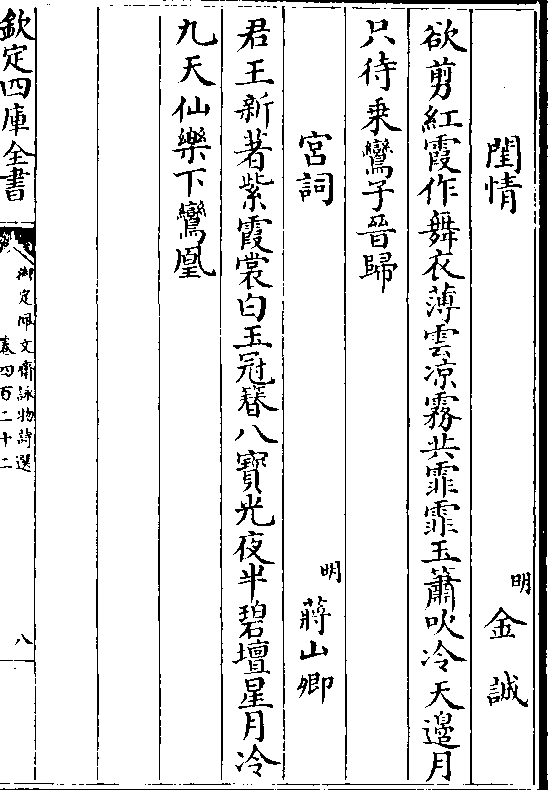 閨情
明 金誠
欲剪紅霞作舞衣薄雲凉霧共霏霏玉簫吹冷天邊月
只待乗鸞子晉歸
宮詞
明 蔣山卿
君王新著紫霞裳白玉冠簪八寶光夜半碧壇星月冷
九天仙樂下鸞凰
欽定四庫全書
御定佩文齋詠物詩選
卷四百二十二
八